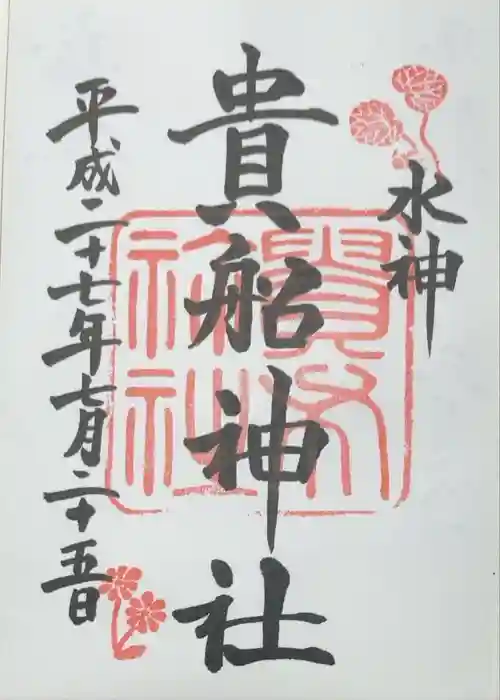 水神
貴船神社
平成二十七年七月二十五日